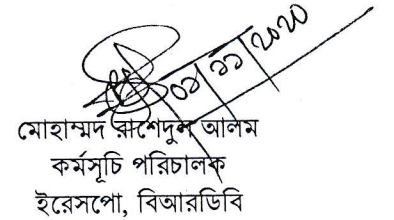 ০১/১১/২০২০
মোহাম্মদ রাশেদুল আলম
কর্মসূচি পরিচালক
ইরেসপো, বিআরডিবি